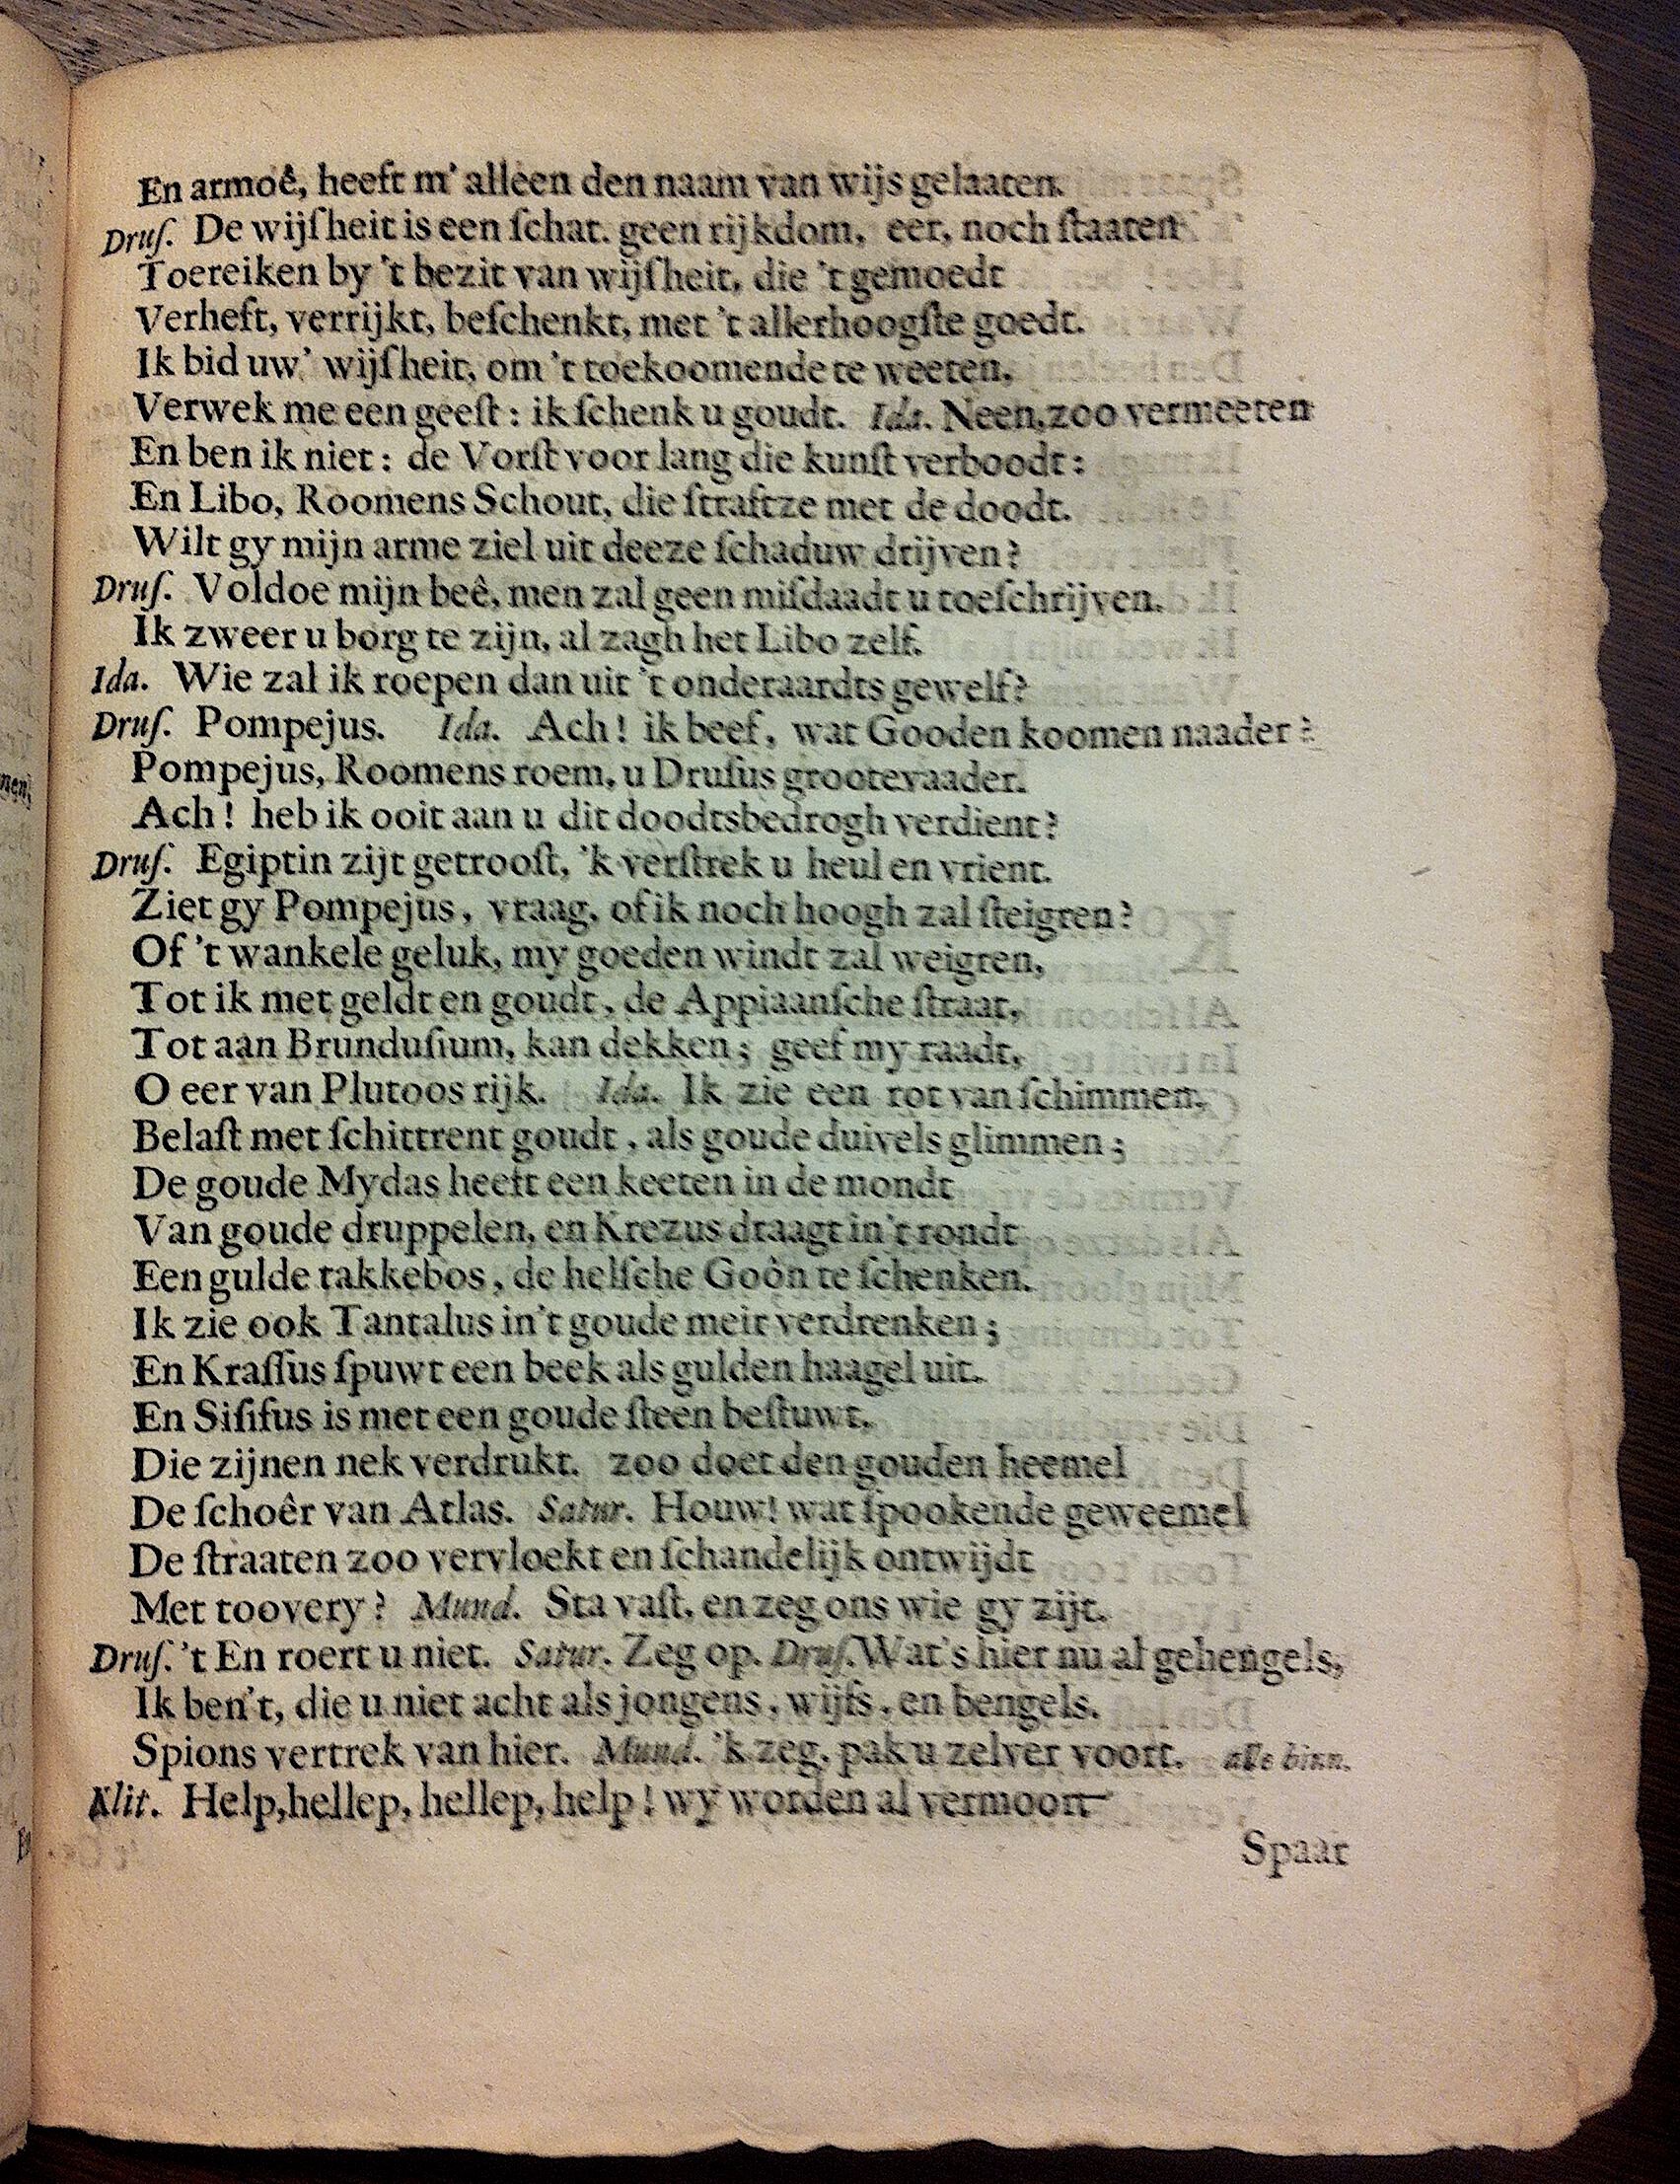 En armoê, heeft m' alleen den naam van wijs gelaaten.
Druſ. De wijſheit is een ſchat. geen rijkdom, eer, noch ſtaaten
Toereiken by 't bezit van wijſheit, die 't gemoedt
Verheft, verrijkt, beſchenkt, met 't allerhoogſte goedt.
Ik bid uw' wijſheit, om 't toekoomende te weeten,
Verwek me een geeſt: ik ſchenk u goudt. Ida. Neen, zoo vermeeten
En ben ik niet: de Vorſt voor lang die kunſt verboodt:
En Libo, Roomens Schout, die ſtraftze met de doodt.
Wilt gy mijn arme ziel uit deeze ſchaduw drijven?
Druſ. Voldoe mijn beê, men zal geen miſdaadt u toeſchrijven.
Ik zweer u borg te zijn, al zagh het Libo zelf.
Ida. Wie zal ik roepen dan uit 't onderaardts gewelf?
Druſ. Pompejus. Ida. Ach! ik beef, wat Gooden koomen naader?
Pompejus, Roomens roem, u Druſus grootevaader.
Ach! heb ik ooit aan u dit doodtsbedrogh verdient?
Druſ. Egiptin zijt getrooſt, 'k verſtrek u heul en vrient.
Ziet gy Pompejus, vraag, of ik noch hoogh zal ſteigren?
Of 't wankele geluk, my goeden windt zal weigren,
Tot ik met geldt en goudt, de Appiaanſche ſtraat,
Tot aan Brunduſium, kan dekken; geef my raadt,
O eer van Plutoos rijk. Ida. Ik zie een rot van ſchimmen,
Belaſt met ſchittrent goudt, als goude duivels glimmen;
De goude Mydas heeft een keeten in de mondt
Van goude druppelen, en Krezus draagt in't rondt
Een gulde takkebos, de helſche Goôn te ſchenken.
Ik zie ook Tantalus in't goude meir verdrenken;
En Kraſſus ſpuwt een beek als gulden haagel uit.
En Siſifus is met een goude ſteen beſtuwt,
Die zijnen nek verdrukt. zoo doet den gouden heemel
De ſchoêr van Atlas. Satur. Houw! wat ſpookende geweemel
De ſtraaten zoo vervloekt en ſchandelijk ontwijdt
Met toovery? Mund. Sta vaſt, en zeg ons wie gy zijt.
Druſ. 't En roert u niet. Satur. Zeg op. Druſ. Wat's hier nu al gehengels,
Ik ben't, die u niet acht als jongens, wijfs, en bengels.
Spions vertrek van hier. Mund. 'k zeg, pak u zelver voort. alle binn.
Klit. Help, hellep, hellep, help! wy worden al vermoort
Spaar